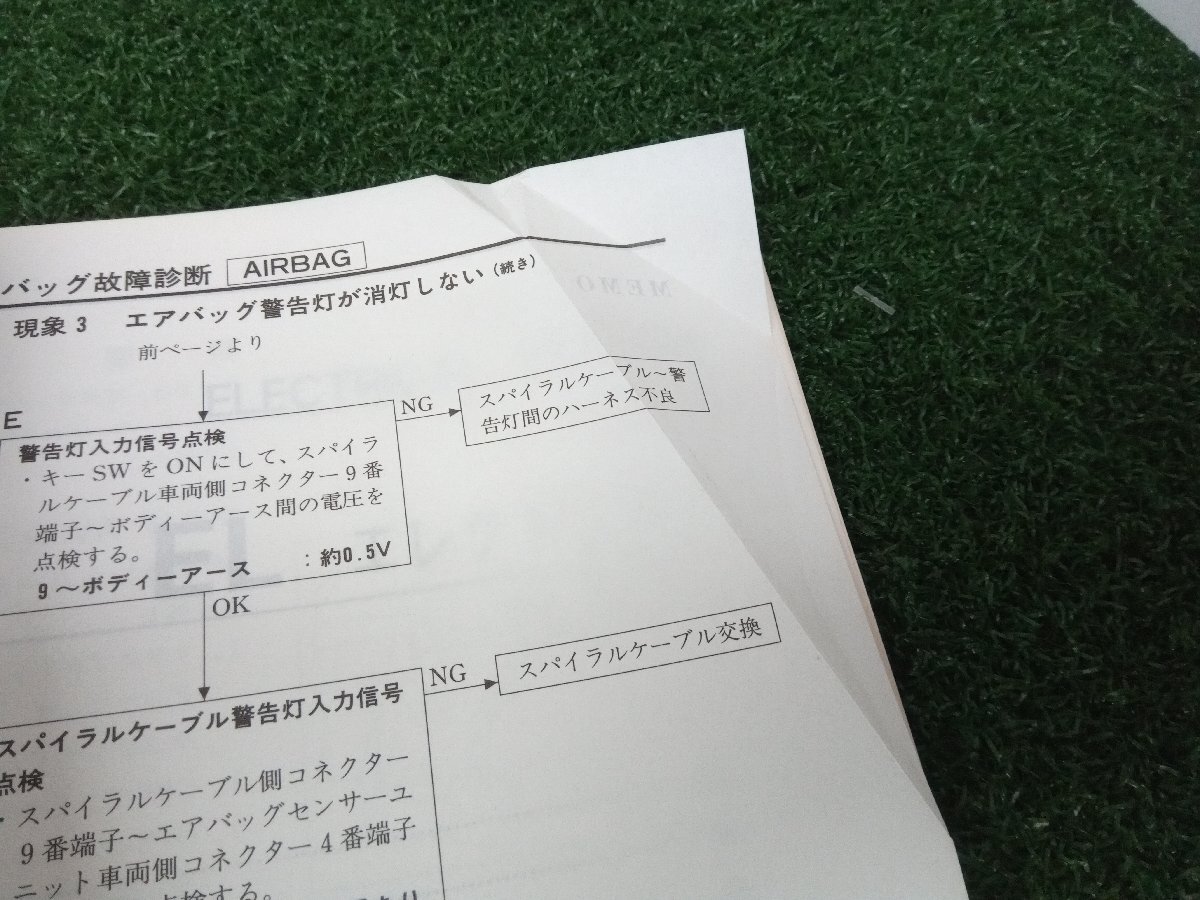 バッグ故障診断 AIRBAG
現象3 エアバッグ警告灯が消灯しない(続き)
MEMO
前ページより
E
警告灯入力信号点検
・キーSWをONにして、スパイラ
ルケーブル車両側コネクター9番
端子～ボディーアース間の電圧を
点検する。
9～ボディーアース :約0.5V
NG
スパイラルケーブル～警
告灯間のハーネス不良
OK
スパイラルケーブル警告灯入力信号
点検
・スパイラルケーブル側コネクター
9番端子～エアバッグセンサーユ
ニット車両側コネクター4番端子
点検する。
NG
スパイラルケーブル交換